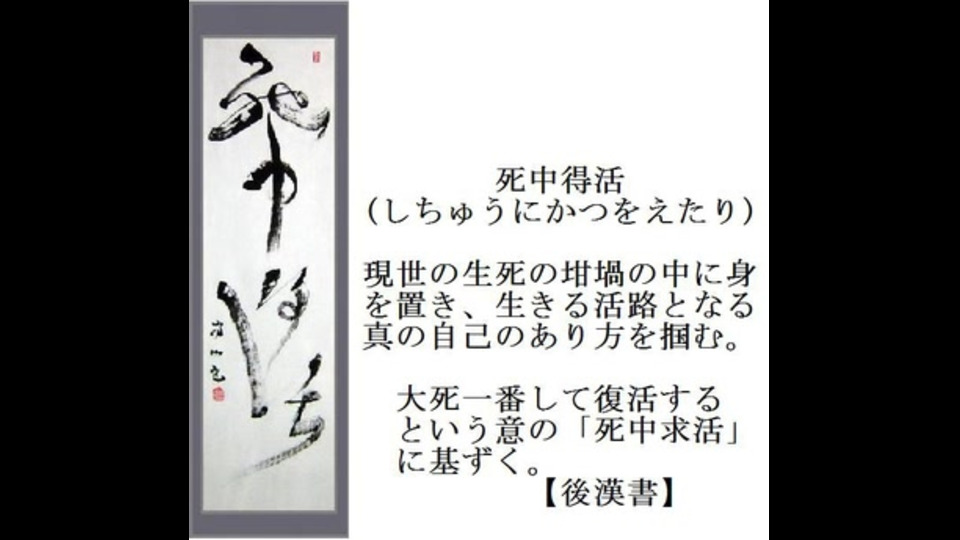 死中得活
死中得活
(しちゅうにかつをえたり)
現世の生死の坩堝の中に身
を置き、生きる活路となる
真の自己のあり方を掴む。
大死一番して復活する
という意の「死中求活」
に基ずく。
【後漢書】